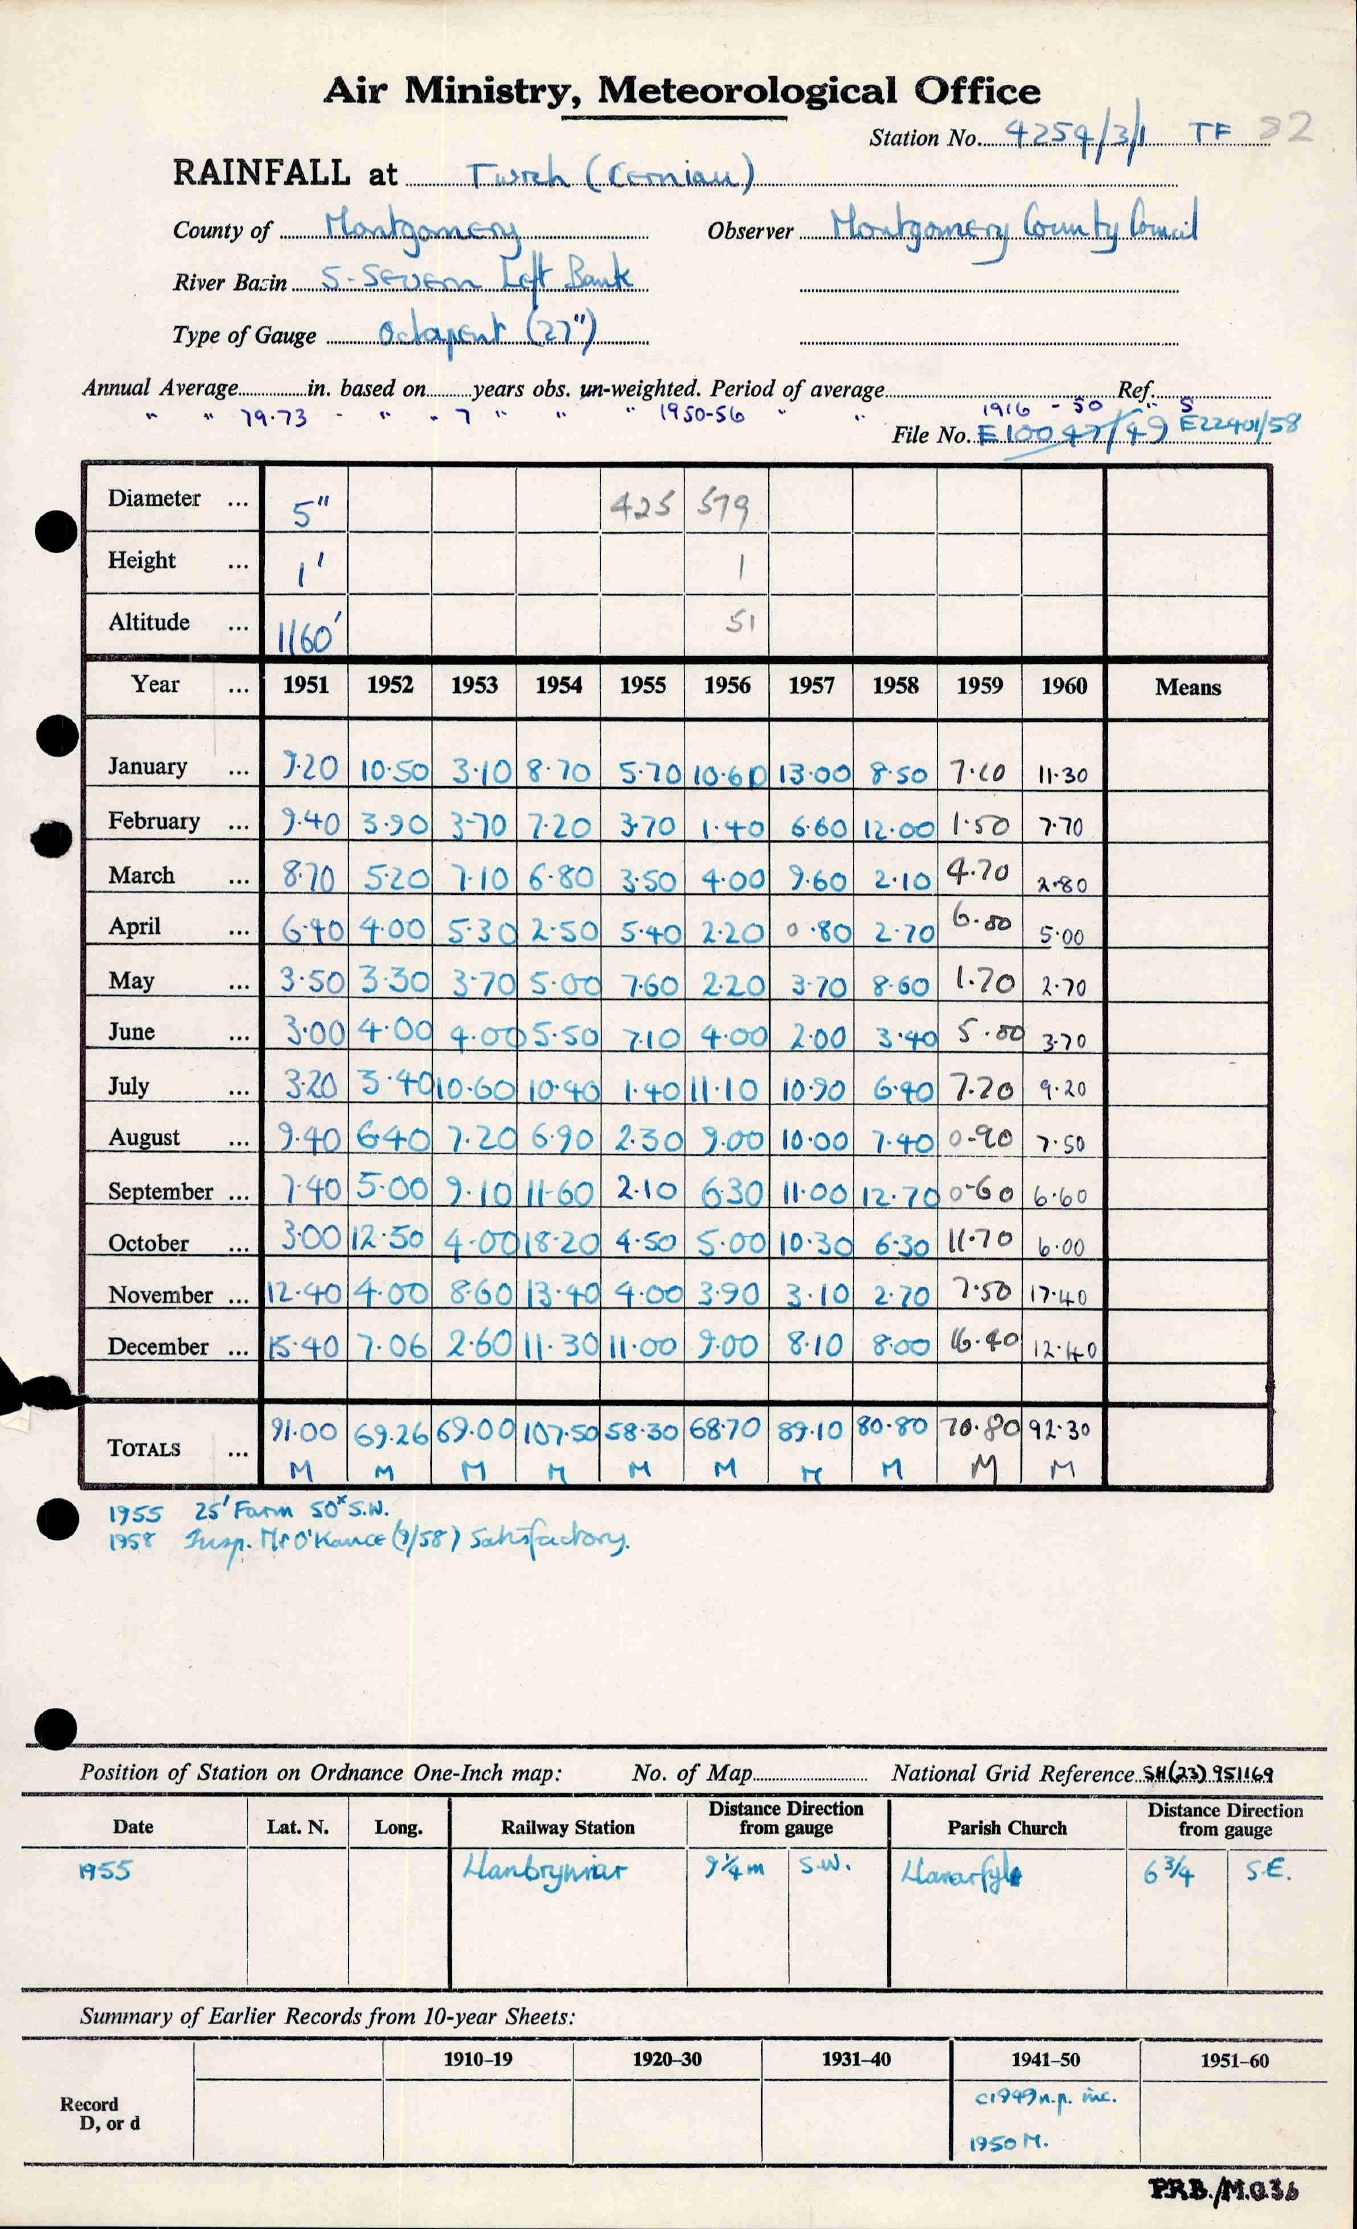 Air Ministry, Meteorological Office
Station No. 4259/3/1 TF 82
RAINFALL at Twrch (Cerniau)
County of Montgomery Observer Montgomery County Council
River Basin S-Severn Left Bank
Type of Gauge Octapent (27")
Annual Average in. based on years obs. un-weighted. Period of average Ref.
" " 79.73 - " - 7 " " " 1950-56 " " 1916 - 50 " S
File No. E10047/49 E22401/58
Diameter ... 5" 425 579
Height ... 1' 1
Altitude ... 1160' 51
Year ... 1951 1952 1953 1954 1955 1956 1957 1958 1959 1960 Means
January ... 9.20 10.50 3.10 8.70 5.70 10.60 13.00 8.50 7.60 11.30
February ... 9.40 3.90 3.70 7.20 3.70 1.40 6.60 12.00 1.50 7.70
March ... 8.70 5.20 7.10 6.80 3.50 4.00 9.60 2.10 4.70 2.80
April ... 6.40 4.00 5.30 2.50 5.40 2.20 0.80 2.70 6.00 5.00
May ... 3.50 3.30 3.70 5.00 7.60 2.20 3.70 8.60 1.70 2.70
June ... 3.00 4.00 4.00 5.50 7.10 4.00 2.00 3.40 5.00 3.70
July ... 3.20 3.40 10.60 10.40 1.40 11.10 10.90 6.40 7.20 9.20
August ... 9.40 6.40 7.20 6.90 2.30 9.00 10.00 7.40 0.90 7.50
September ... 7.40 5.00 9.10 11.60 2.10 6.30 11.00 12.70 0.60 6.60
October ... 3.00 12.50 4.00 18.20 4.50 5.00 10.30 6.30 11.70 6.00
November ... 12.40 4.00 8.60 13.40 4.00 3.90 3.10 2.70 7.50 17.40
December ... 15.40 7.06 2.60 11.30 11.00 9.00 8.10 8.00 16.40 12.40
TOTALS ... 91.00 69.26 69.00 107.50 58.30 68.70 89.10 80.80 70.80 92.30
M M M M M M M M M M
1955 25' Farm 50x S.W.
1958 Insp. Mr O'Kance (9/58) Satisfactory.
Position of Station on Ordnance One-Inch map: No. of Map National Grid Reference SH(23) 951169
Date Lat. N. Long. Railway Station Distance Direction from gauge Parish Church Distance Direction from gauge
1955 Llanbrynmair 9¼m S.W. Llanerfyl 6¾ S.E.
Summary of Earlier Records from 10-year Sheets:
1910-19 1920-30 1931-40 1941-50 1951-60
Record D, or d
c1949 n.p. inc.
1950 M.
P.R.B./M.O.36